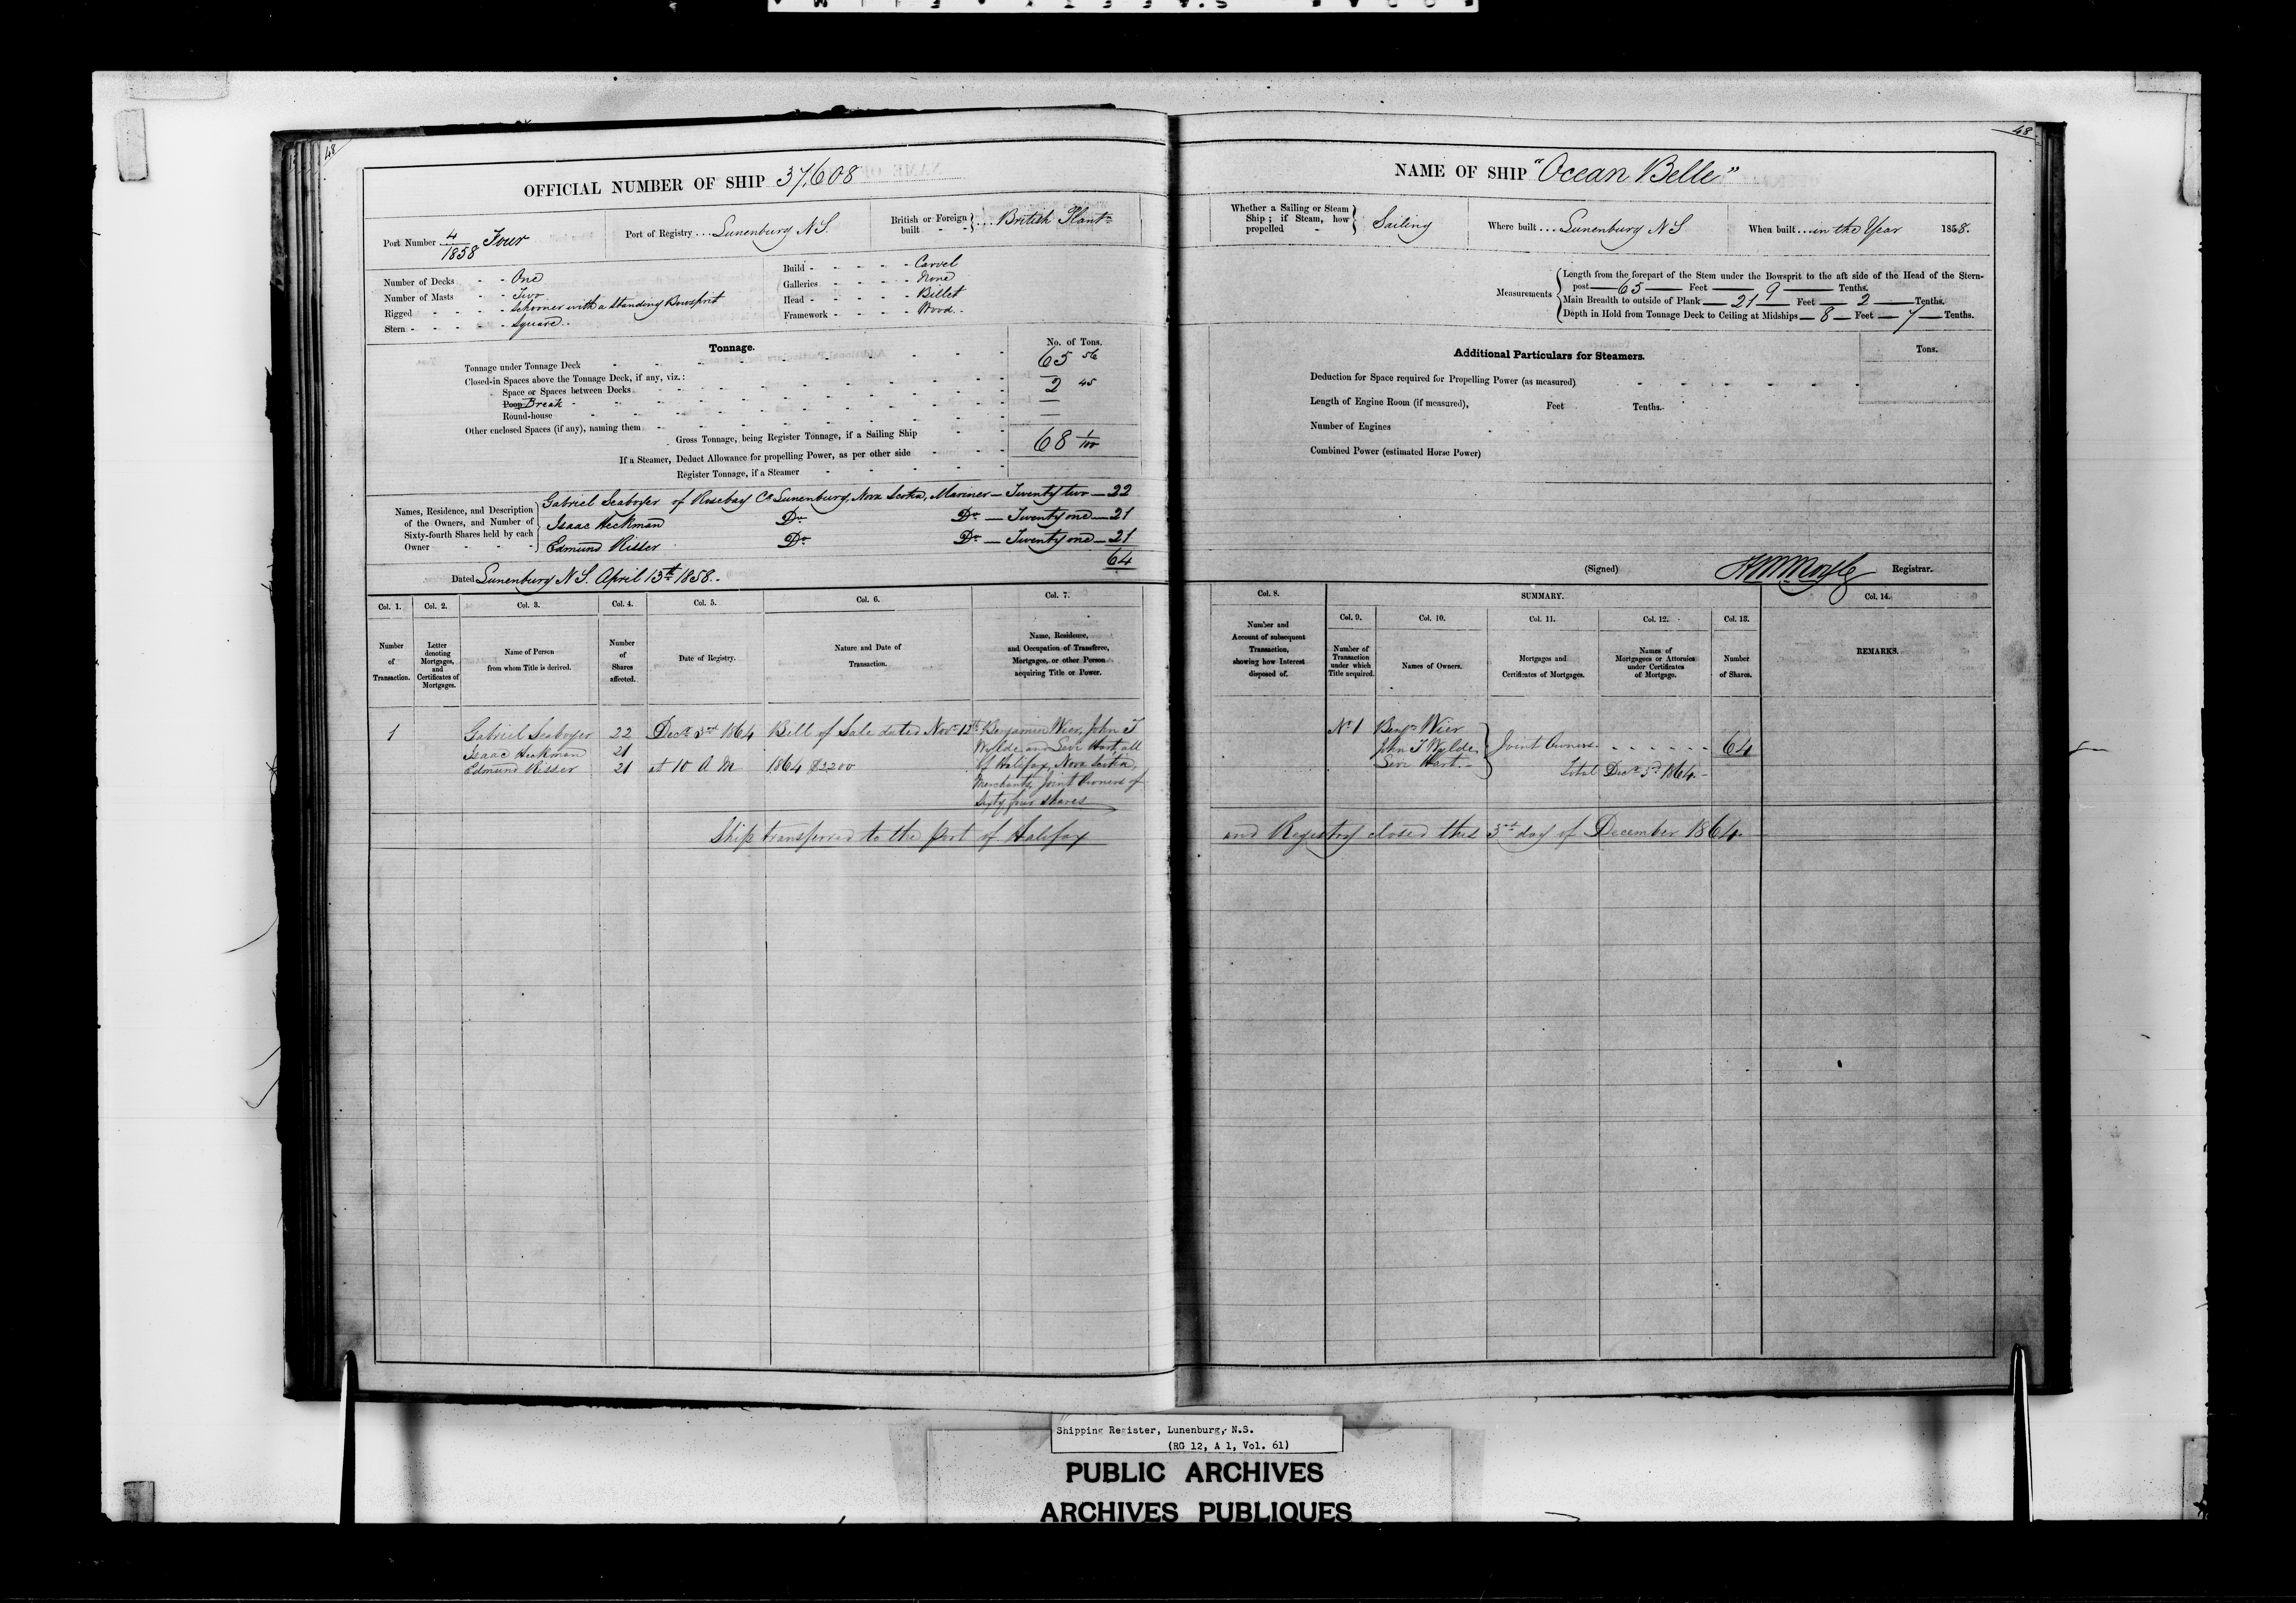 48
OFFICIAL NUMBER OF SHIP 37,608
Port Number 4/1858 Four
Port of Registry ... Lunenburg N.S.
British or Foreign built - - } ... British Plantn
Number of Decks - - One
Number of Masts - - Two
Rigged - - - - Schooner with a standing Bowsprit
Stern - - - - - Square
Build - - - - - Carvel
Galleries - - - - None
Head - - - - - Billet
Framework - - - - Wood
Tonnage.
No. of Tons.
Tonnage under Tonnage Deck 65 56
Closed-in Spaces above the Tonnage Deck, if any, viz.:
Space or Spaces between Decks
Poop Break 2 45
Round-house
Other enclosed Spaces (if any), naming them
Gross Tonnage, being Register Tonnage, if a Sailing Ship 68 1/100
If a Steamer, Deduct Allowance for propelling Power, as per other side
Register Tonnage, if a Steamer
Names, Residence, and Description of the Owners, and Number of Sixty-fourth Shares held by each Owner
Gabriel Seaboyer of Rosebay Co Lunenburg, Nova Scotia, Mariner — Twenty two — 22
Isaac Heckman Do Do — Twenty one — 21
Edmund Risser Do Do — Twenty one — 21
64
Dated Lunenburg N.S. April 13th 1858.
Col. 1. Col. 2. Col. 3. Col. 4. Col. 5. Col. 6. Col. 7.
Number of Transaction.
Letter denoting Mortgages, and Certificates of Mortgages.
Name of Person from whom Title is derived.
Number of Shares affected.
Date of Registry.
Nature and Date of Transaction.
Name, Residence, and Occupation of Transferee, Mortgagee, or other Person acquiring Title or Power.
1 Gabriel Seaboyer 22 Decr 3rd 1864 Bill of Sale dated Novr 12th Benjamin Wier, John T
Isaac Heckman 21 Wylde and Levi Hart all
Edmund Risser 21 at 10 A M 1864 $2200 of Halifax, Nova Scotia,
Merchants, Joint Owners of
Sixty four shares
Ship transferred to the Port of Halifax
48
NAME OF SHIP "Ocean Belle"
Whether a Sailing or Steam Ship; if Steam, how propelled - } Sailing
Where built ... Lunenburg N S
When built ... in the Year 1858.
Measurements
Length from the forepart of the Stem under the Bowsprit to the aft side of the Head of the Stern-
post — 65 — Feet — 9 — Tenths.
Main Breadth to outside of Plank — 21 — Feet — 2 — Tenths.
Depth in Hold from Tonnage Deck to Ceiling at Midships — 8 — Feet — 7 — Tenths.
Additional Particulars for Steamers.
Tons.
Deduction for Space required for Propelling Power (as measured)
Length of Engine Room (if measured), Feet Tenths.
Number of Engines
Combined Power (estimated Horse Power)
(Signed) Registrar.
Col. 8. SUMMARY. Col. 14.
Col. 9. Col. 10. Col. 11. Col. 12. Col. 13.
Number and Account of subsequent Transaction, showing how Interest disposed of.
Number of Transaction under which Title acquired.
Names of Owners.
Mortgages and Certificates of Mortgages.
Names of Mortgagees or Attornies under Certificates of Mortgage.
Number of Shares.
REMARKS.
No 1 Benjn Wier
John T Wylde } Joint Owners - - - - - - 64
Levi Hart.
Total Decr 3rd 1864.
and Registry closed this 3rd day of December 1864.
Shipping Register, Lunenburg, N.S.
(RG 12, A 1, Vol. 61)
PUBLIC ARCHIVES
ARCHIVES PUBLIQUES